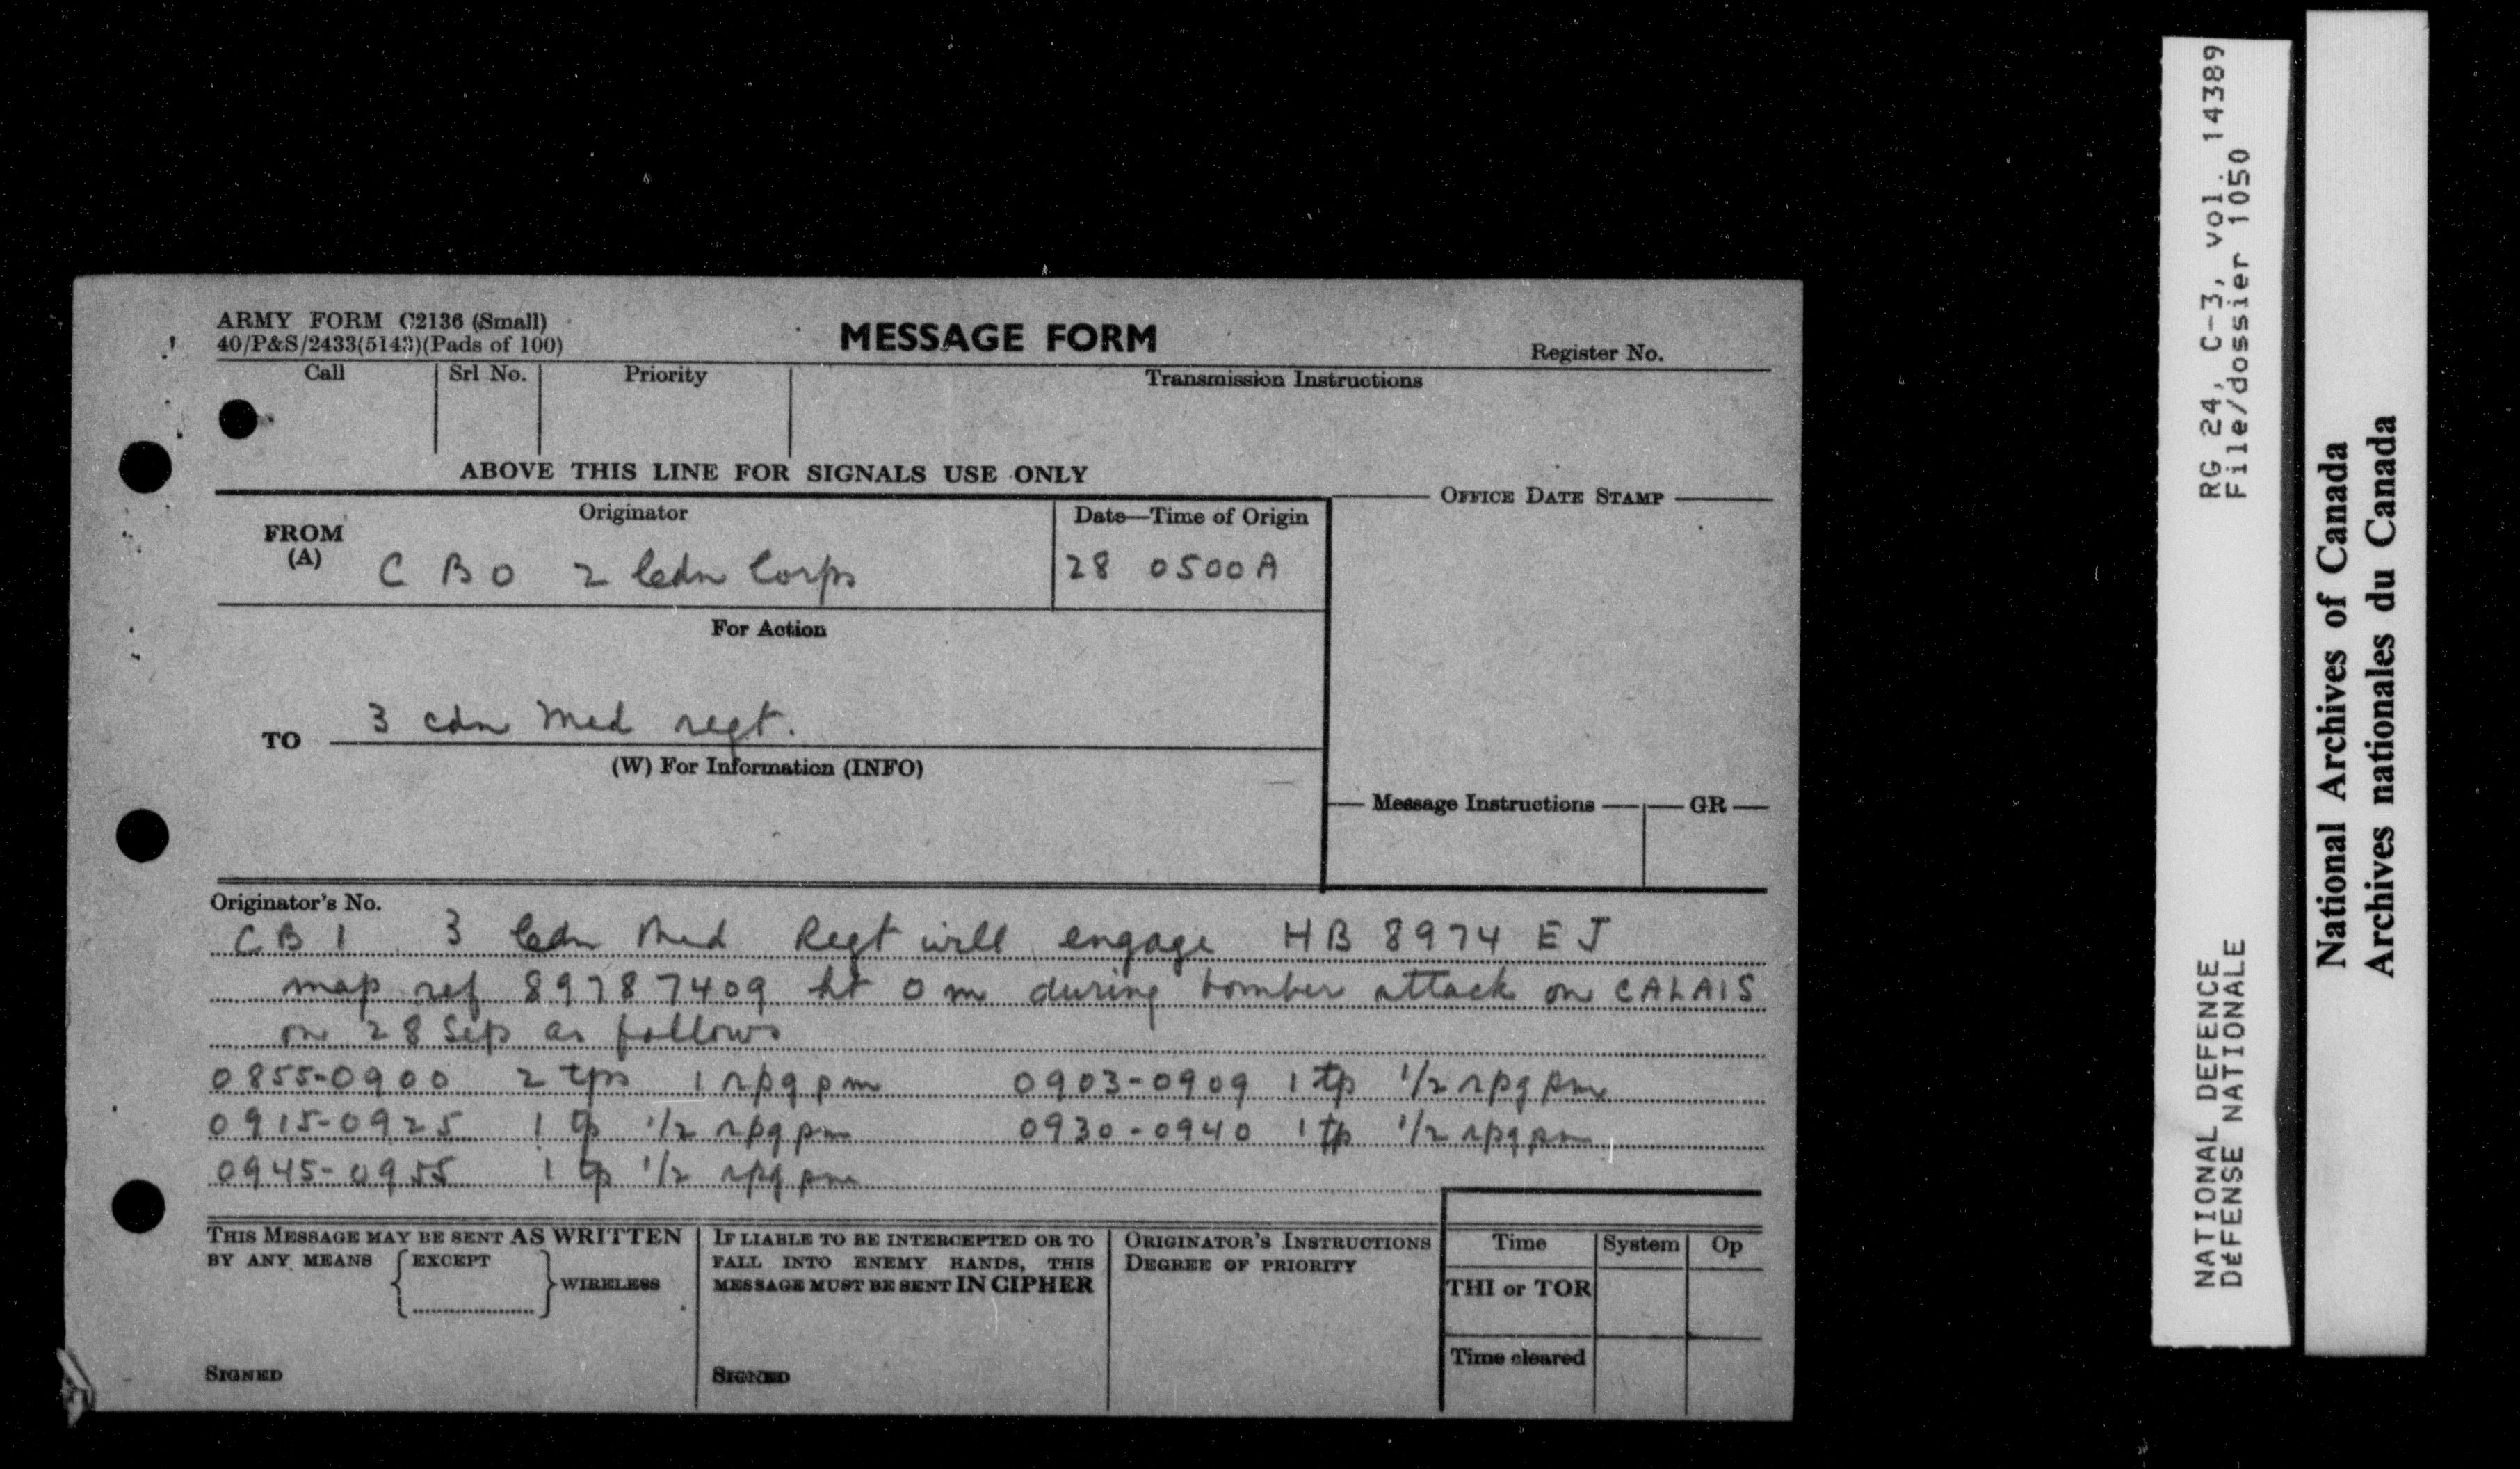 ARMY FORM C2136 (Small)
40/P&S/2433(5143)(Pads of 100)
MESSAGE FORM
Register No.
Call Srl No. Priority Transmission Instructions
ABOVE THIS LINE FOR SIGNALS USE ONLY
OFFICE DATE STAMP
FROM
(A)
Originator
Date—Time of Origin
C B O 2 Cdn Corps
28 0500A
For Action
TO
3 cdn Med regt.
(W) For Information (INFO)
Message Instructions GR
Originator's No.
CB 1 3 Cdn Med Regt will engage HB 8974 EJ
map ref 89787409 ht 0 m during bomber attack on CALAIS
on 28 Sep as follows
0855-0900 2 tps 1 rpgpm 0903-0909 1 tp 1/2 rpgpm
0915-0925 1 tp 1/2 rpgpm 0930-0940 1 tp 1/2 rpgpm
0945-0955 1 tp 1/2 rpgpm
THIS MESSAGE MAY BE SENT AS WRITTEN
BY ANY MEANS EXCEPT
WIRELESS
SIGNED
IF LIABLE TO BE INTERCEPTED OR TO
FALL INTO ENEMY HANDS, THIS
MESSAGE MUST BE SENT IN CIPHER
SIGNED
ORIGINATOR'S INSTRUCTIONS
DEGREE OF PRIORITY
Time System Op
THI or TOR
Time cleared
NATIONAL DEFENCE RG 24, C-3, vol. 14389
DéFENSE NATIONALE File/dossier 1050
National Archives of Canada
Archives nationales du Canada